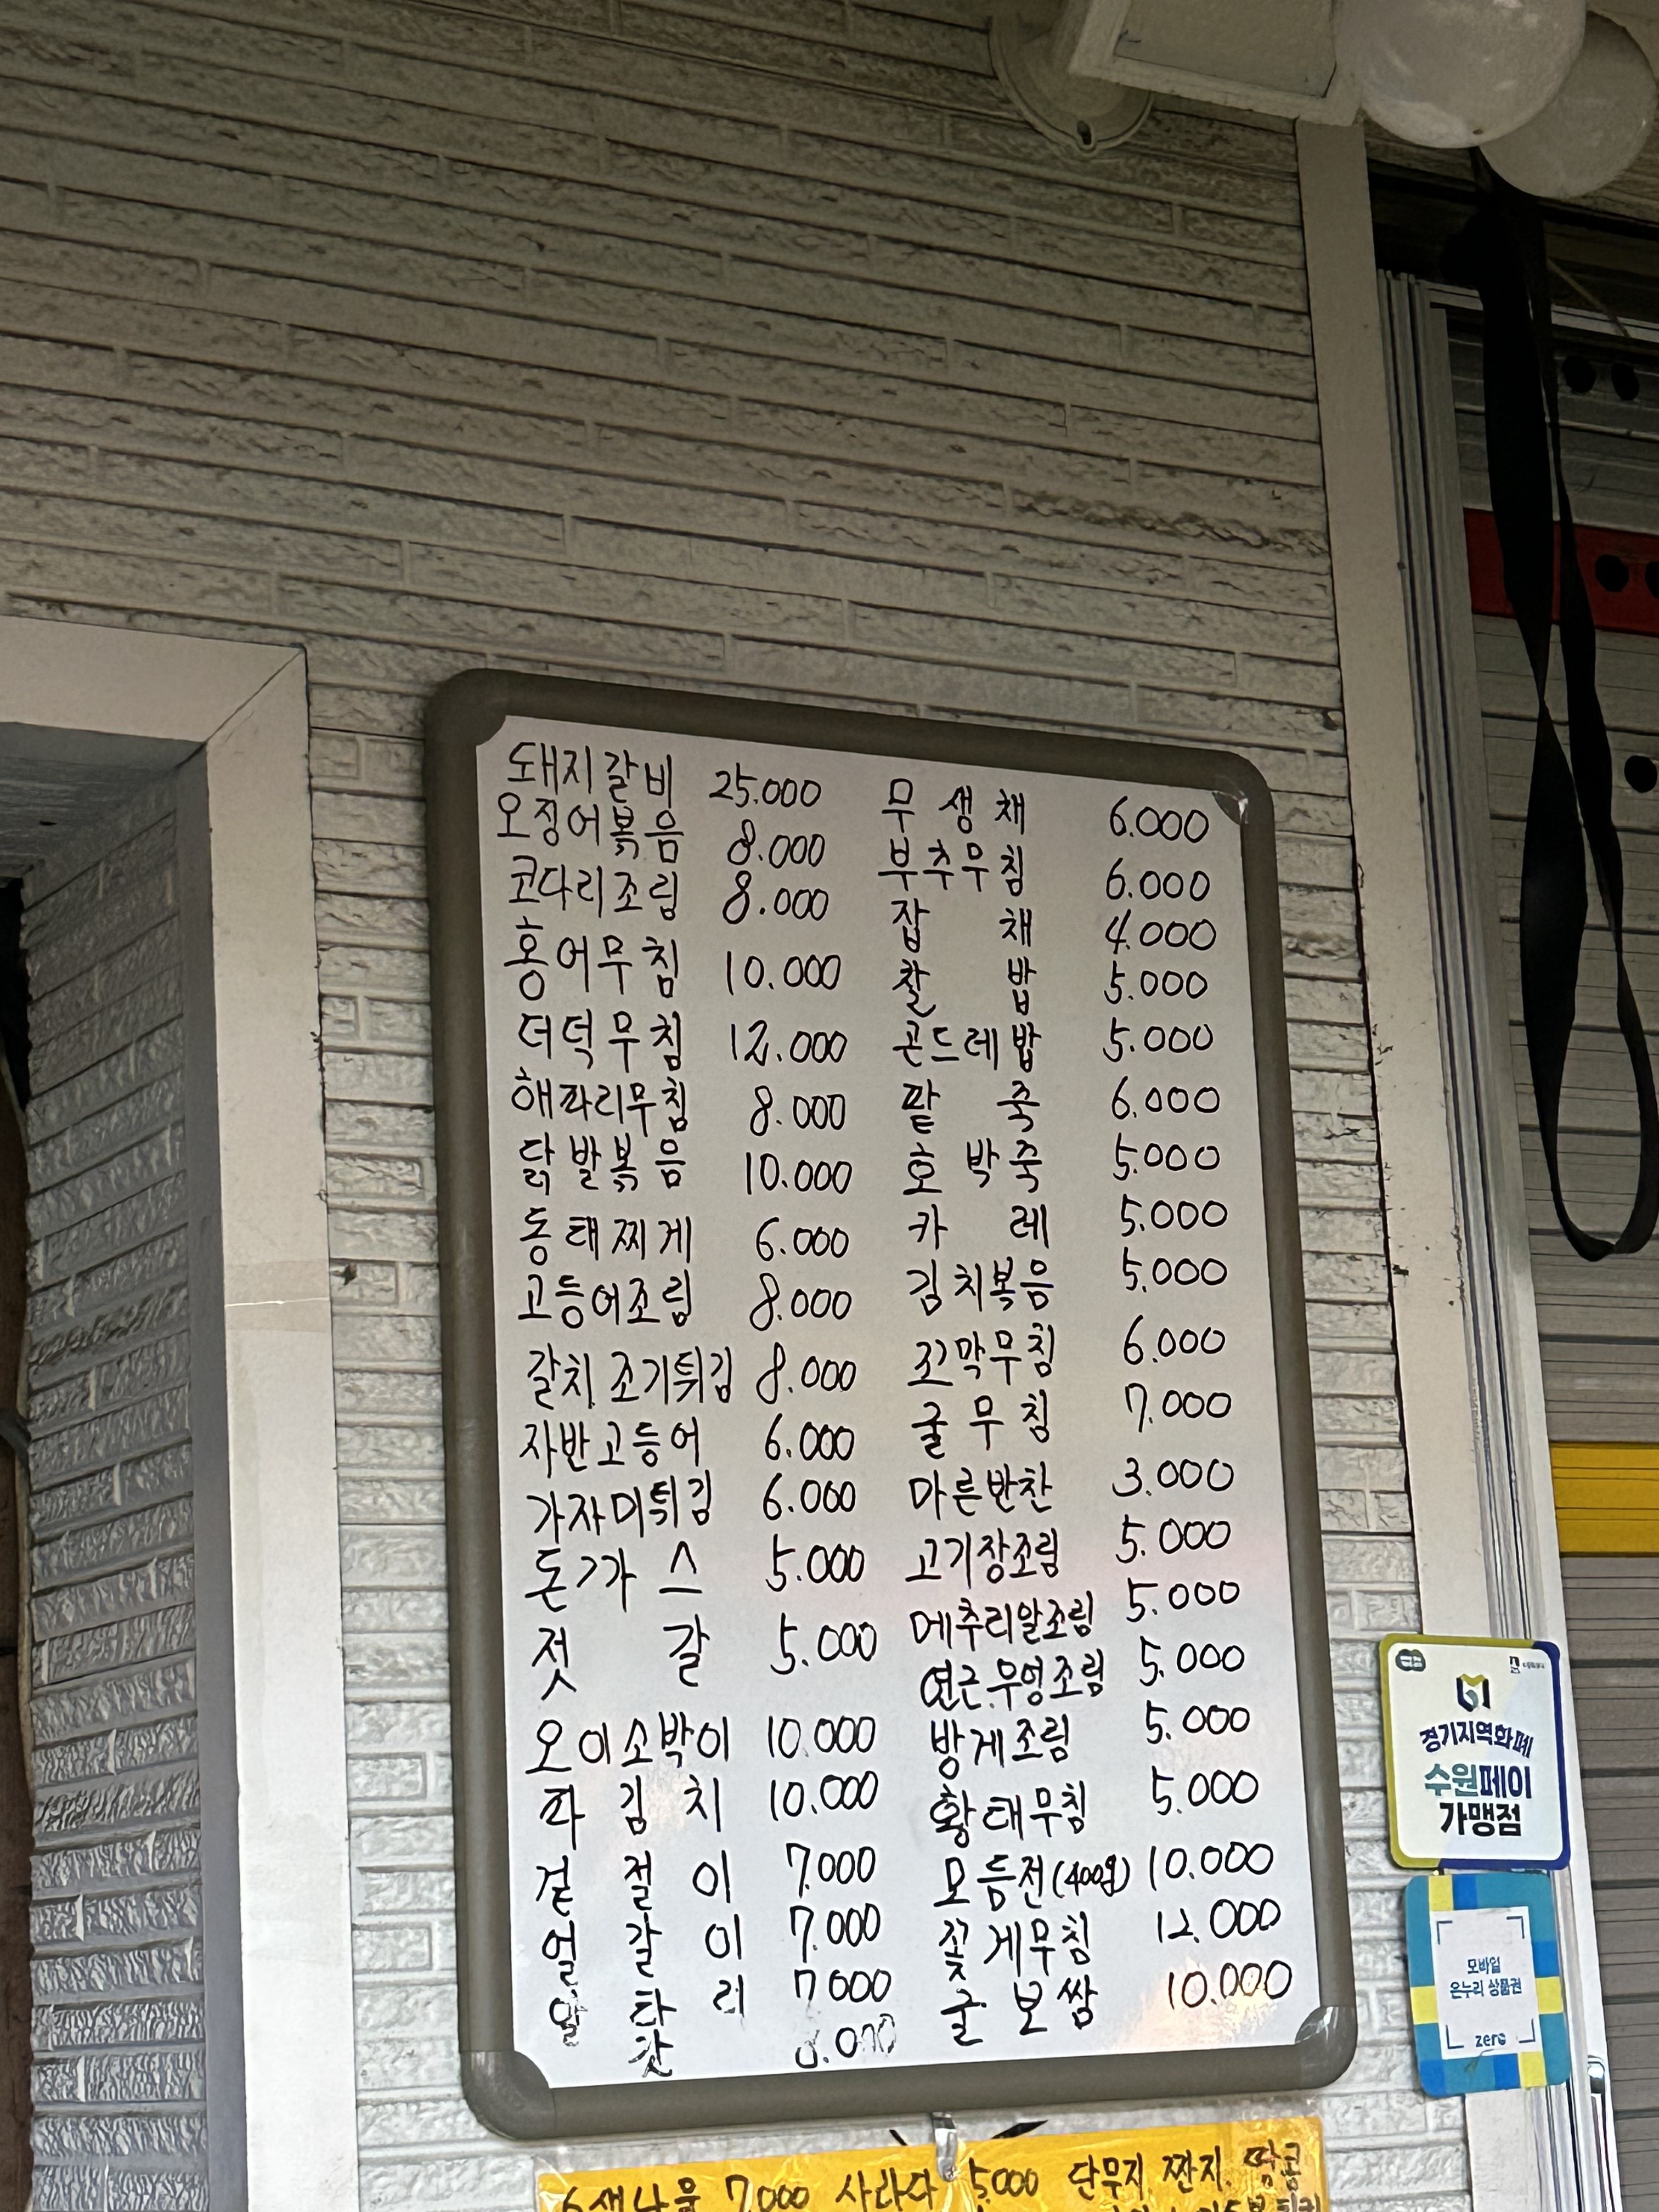 돼지갈비 25.000
오징어볶음 8.000
코다리조림 8.000
홍어무침 10.000
더덕무침 12.000
해파리무침 8.000
닭발볶음 10.000
동태찌게 6.000
고등어조림 8.000
갈치.조기튀김 8.000
자반고등어 6.000
가자미튀김 6.000
돈가스 5.000
젓갈 5.000
오이소박이 10.000
파김치 10.000
겉절이 7.000
얼갈이 7.000
알타리 7.000
무생채 6.000
부추무침 6.000
잡채 4.000
찰밥 5.000
곤드레밥 5.000
팥죽 6.000
호박죽 5.000
카레 5.000
김치볶음 5.000
꼬막무침 6.000
굴무침 7.000
마른반찬 3.000
고기장조림 5.000
메추리알조림 5.000
연근.우엉조림 5.000
방게조림 5.000
황태무침 5.000
모듬전(400g) 10.000
꽃게무침 12.000
굴보쌈 10.000
경기지역화폐
수원페이
가맹점
모바일
온누리 상품권
zero
7.000 사라다 5.000 단무지.짠지.땅콩